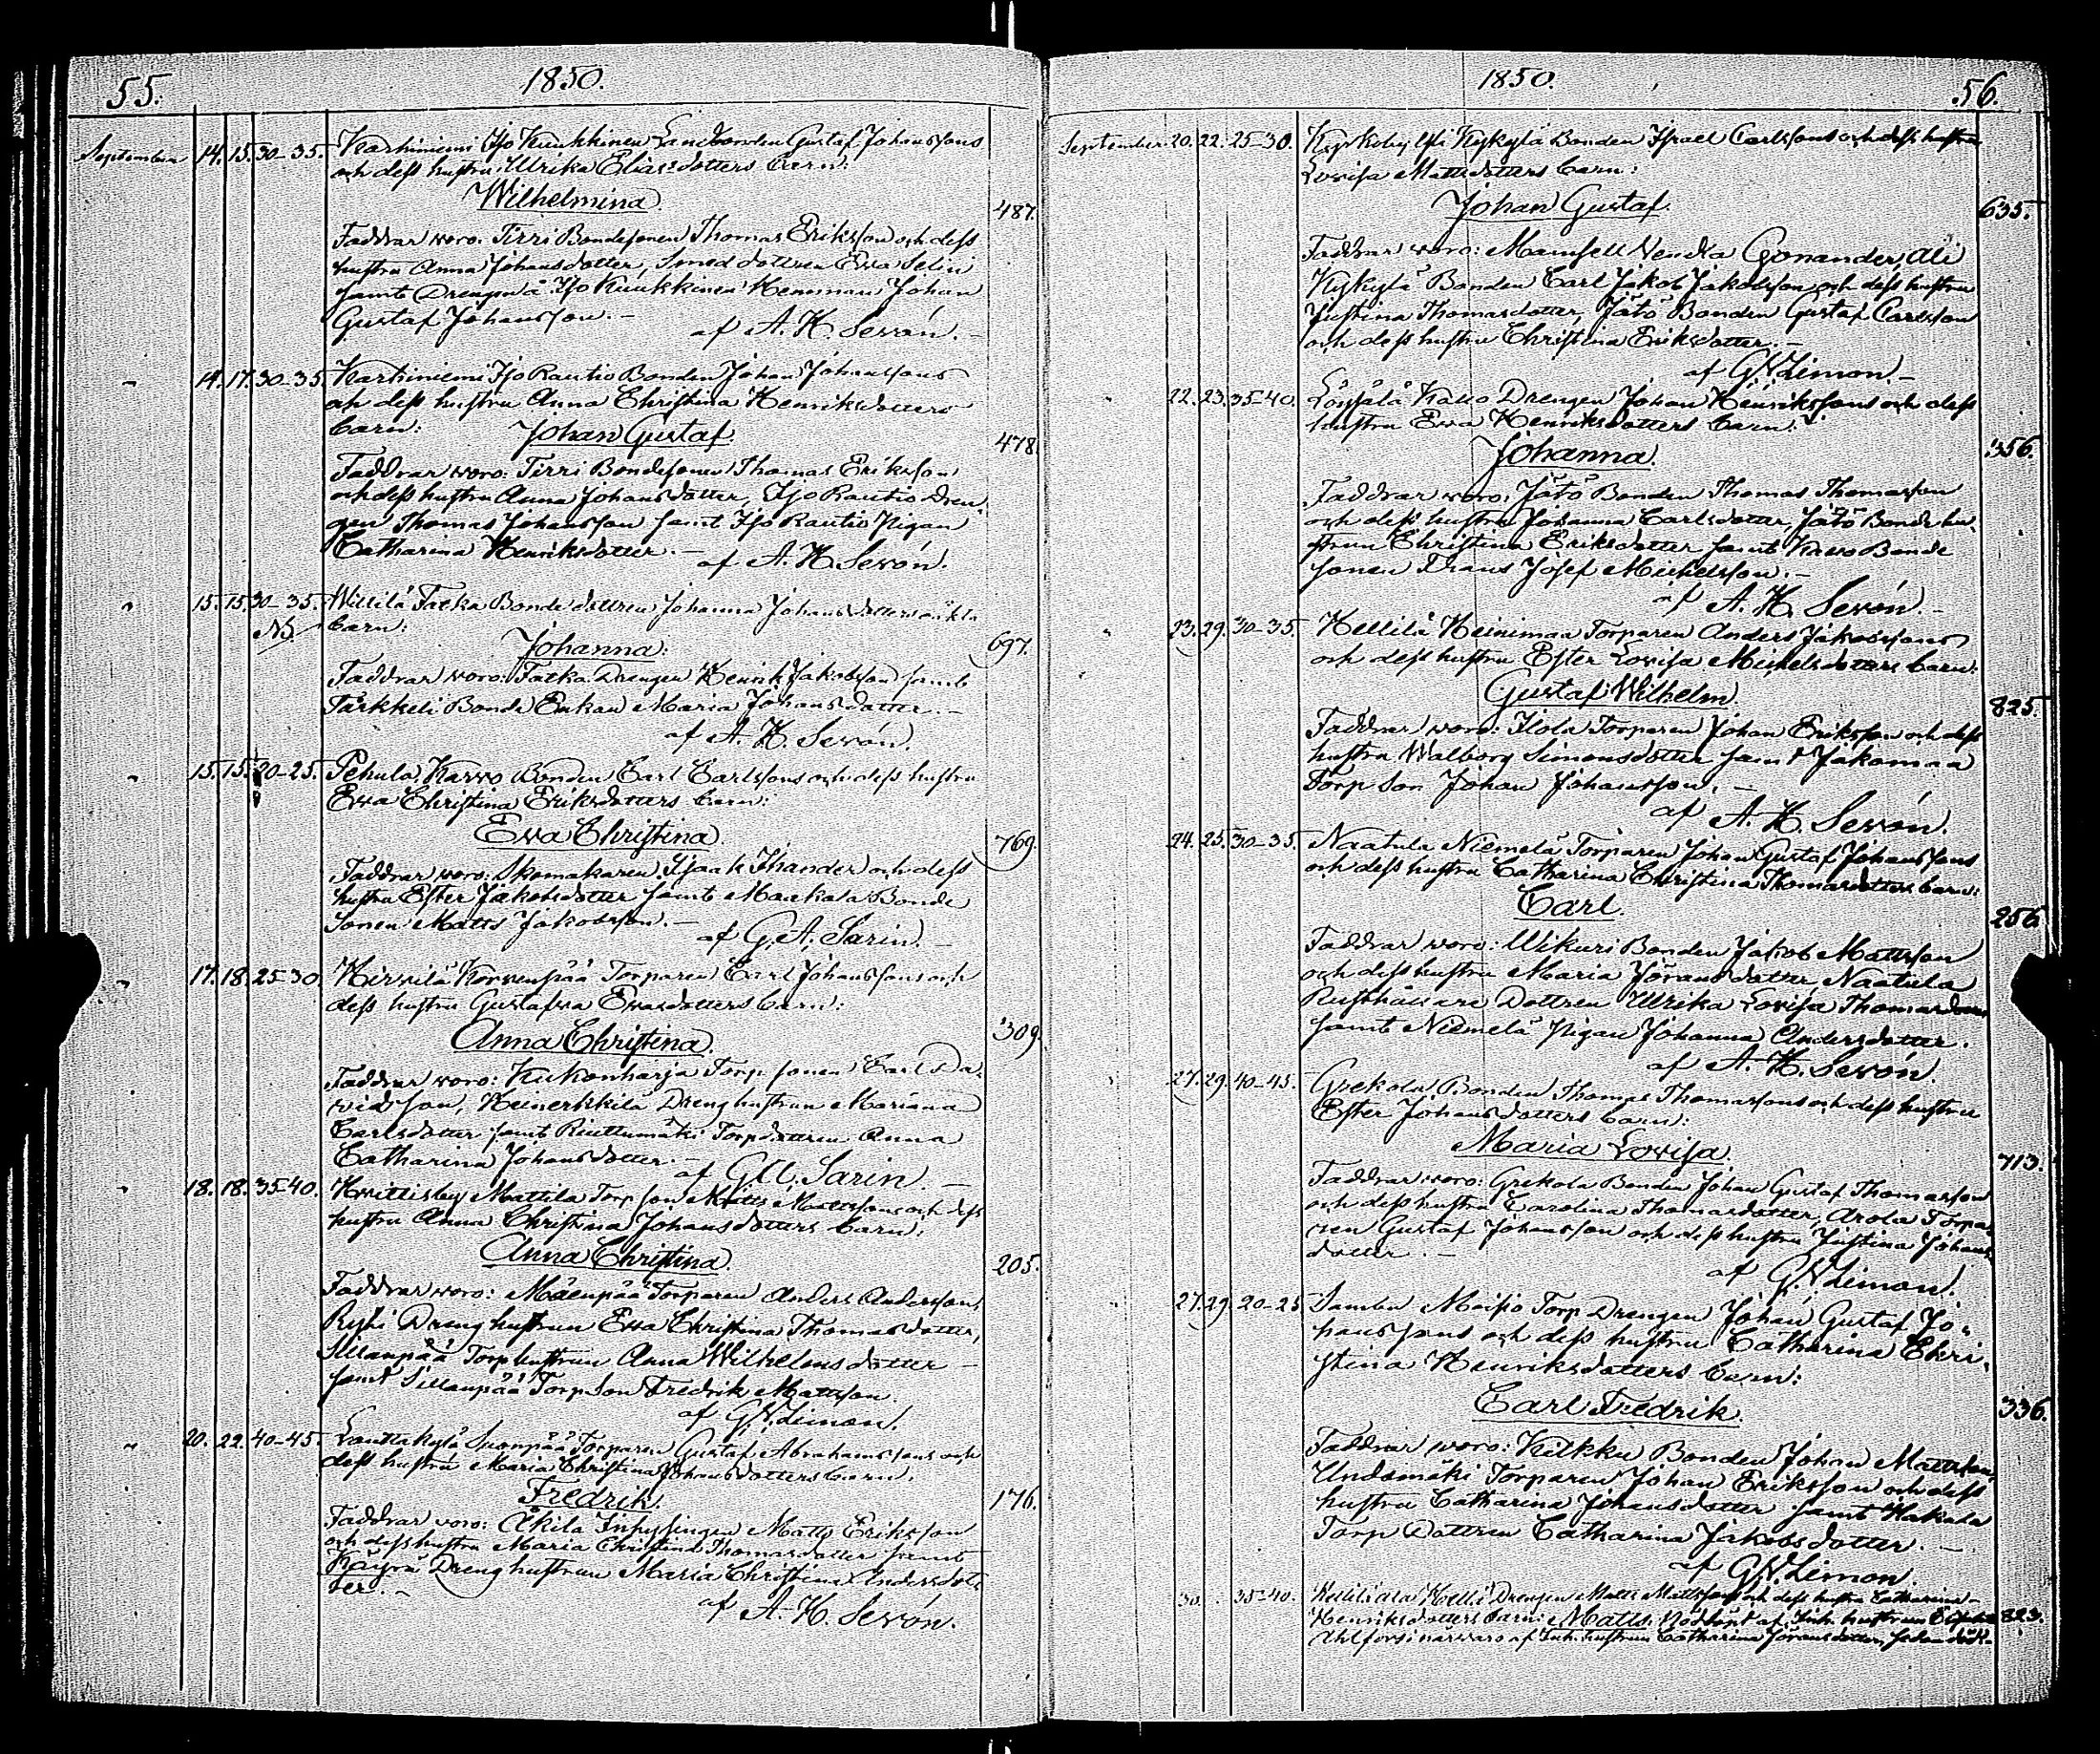 55. 1850.
September 14. 15. 30-35. Karhiniemi Ijo Kuukkinen Landbonden Gustaf Johanssons
och dess hustru Ulrika Eliasdotters barn:
Wilhelmina 487.
Faddrar woro: Tirri Bondesonen Thomas Eriksson och dess
hustru Anna Johansdotter, Smed dottren Ewa Selin
samt Drengen å Ijo Kuukkinen Hemman Johan
Gustaf Johansson. -
af A. H. Sewón. -
" 14. 17. 30-35 Karhiniemi Ijo Rautio Bonden Johan Johanssons
och dess hustru Anna Christina Henriksdotters
barn: Johan Gustaf. 478.
Faddrar woro: Tirri Bondesonen Thomas Eriksson
och dess hustru Anna Johansdotter, Ijo Rautio Dren-
gen Thomas Johansson samt Ijo Rautio Pigan
Catharina Henriksdotter. -
af A. H. Sewón.
" 15. 15. 30-35. Willilä Fatka Bonde dottren Johanna Johansdotters oäkta
barn:
Johanna: 697.
Faddrar woro: Fatka Drengen Henrik Jakobsson samt
Tarkkeli Bonde Enkan Maria Johansdotter. -
af A. H. Sewón.
" 15. 15. 20-25. Pehula Karwo Bonden Carl Carlssons och dess hustru
Ewa Christina Eriksdotters barn:
Ewa Christina 769.
Faddrar woro: Skomakaren Isaak Thander och dess
hustru Ester Jakobsdotter samt Maukola Bonde
Sonen Matts Jakobsson. -
af G. A. Sarin. -
" 17. 18. 25-30. Hirwilä Korwenpää Torparen Carl Johanssons och
dess hustru Gustafwa Ewasdotters barn:
Anna Christina. 309.
Faddrar woro: Kukonharja Torp sonen Carl Da-
vidsson, Heinerkkilä Drenghustrun Mariana
Carlsdotter samt Riuttumäki Torpdottren Anna
Catharina Johansdotter. -
af G. A. Sarin. -
" 18. 18. 35-40. Huittisby Mattila Torp son Matts Mattssons och dess
hustru Anna Christina Johansdotters barn:
Anna Christina. 205.
Faddrar woro: Mäenpää Torparen Anders Andersson,
Ryki Drenghustrun Ewa Christina Thomasdotter,
Sillanpää Torphustrun Anna Wilhelmsdotter -
samt Sillanpää Torp Son Fredrik Mattsson.
af G. W. Limon.
" 20. 22. 40-45. Lauttakylä Suonpää Torparen Gustaf Abrahamssons och
dess hustru Maria Christina Johansdotters barn.
Fredrik. 176.
Faddrar woro: Äkilä Inhysingen Matts Eriksson
och dess hustru Maria Christina Thomasdotter samt
Käyrä Drenghustrun Maria Christina Andersdot-
ter. -
af A. H. Sewón.
1850. 56.
September. 20. 22. 25-30. Kykylä Bonden Israel Carlssons och dess hustru
Lovisa Mattsdotters barn:
Johan Gustaf. 635.
Faddrar woro: Mamsell Vendla Gonander, Ali
Kykylä Bonden Carl Jakob Jakobsson och dess hustru
Justina Thomasdotter, Jätö Bonden Gustaf Carlsson
och dess hustru Christina Eriksdotter. -
af G. W. Limon. -
" 22. 23. 35-40. Löysälä Kauo Drengen Johan Henrikssons och dess
hustru Ewa Henriksdotters barn:
Johanna. 356.
Faddrar woro: Jätö Bonden Thomas Thomasson
och dess hustru Johanna Carlsdotter, Jätö Bonde hu-
strun Christina Eriksdotter samt Kauo Bonde
sonen Frans Josef Michelsson. -
af A. H. Sewón. -
" 23. 29. 30-35. Kellilä Heinimaa Torparen Anders Jakobssons
och dess hustru Ester Lovisa Michelsdotters barn:
Gustaf Wilhelm. 825.
Faddrar woro: Ilola Torparen Johan Eriksson och dess
hustru Walborg Simonsdotter samt Jakomaa
Torp Son Johan Johansson. -
af A. H. Sewón.
24. 25. 30-35. Naatula Niemelä Torparen Johan Gustaf Johanssons
och dess hustru Catharina Christina Thomasdotters barn:
Carl. 256
Faddrar woro: Wikuri Bonden Jakob Mattsson
och dess hustru Maria Jöransdotter, Naatula
Rusthållare Dottren Ulrika Lovisa Thomasdotter
samt Niemelä Pigan Johanna Andersdotter.
af A. H. Sewón.
27. 29. 40-45. Grekola Bonden Thomas Thomassons och dess hustru
Ester Johansdotters barn:
Maria Lovisa. 713.
Faddrar woro: Grekola Bonden Johan Gustaf Thomasson
och dess hustru Carolina Thomasdotter, Arola Torpa-
ren Gustaf Johansson och dess hustru Justina Johans-
dotter. -
af G. W. Limon.
27. 29. 20-25 Sambu Maisio Torp Drengen Johan Gustaf Jo-
hanssons och dess hustru Catharina Chri-
stina Henriksdotters barn:
Carl Fredrik. 336.
Faddrar woro: Kilkku Bonden Johan Mattsson,
Undamäki Torparen Johan Eriksson och dess
hustru Catharina Johansdotter samt Hakala
Torp Dottren Catharina Jakobsdotter. -
af G. W. Limon
30. 35-40. Kelli Drengen Matts Mattssons och dess hustru Catharina
Henriksdotters barn: Matts. Nöddöpt af Inh. hustrun 823.
Ahlfors i närwaro af Inh. hustrun Catharina Jöransdotter, sedan död.